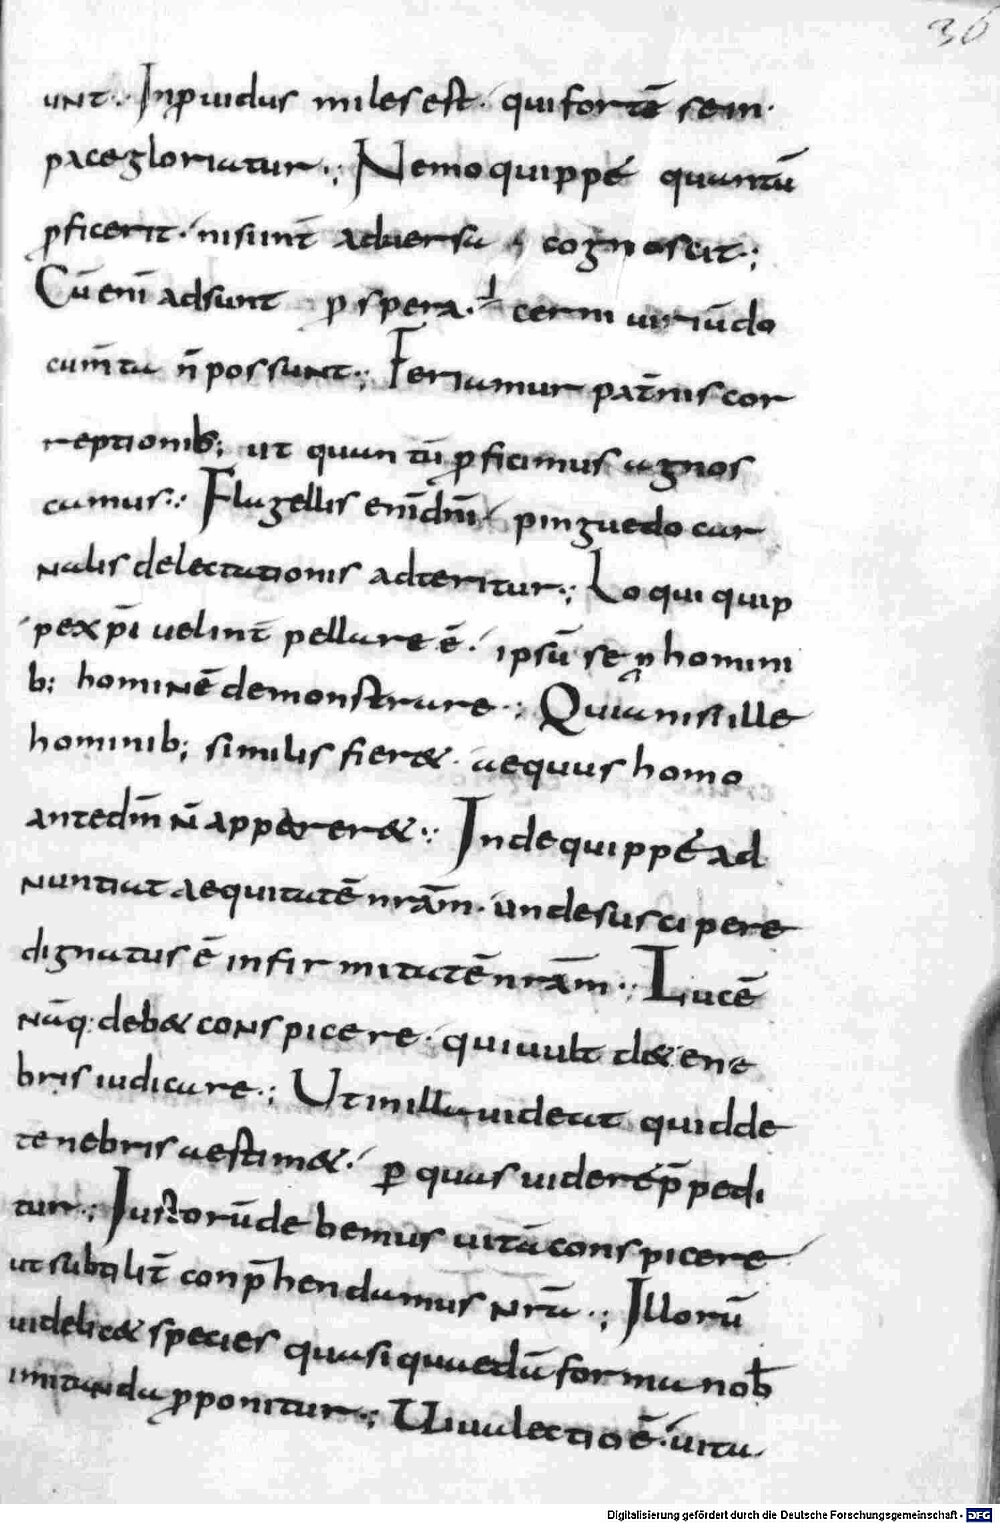 36
unt·. Inprudus miles est· qui fortē se in·
pace gloriatur·; Nemo quippe quantū
ꝓficerit· nisi inť aduersa cognoscit·;
Cū enī adsunt ꝓspera· ł cerni uiriū do
cumta n̄ possunt·; Feriamur pat̄nis cor
reptionib; ut quantū ꝓficimus agnos
camus·; Flagellis enī dm̄ pinguedo car
nalis delectationis adteritur·; Loqui quip
pe xpī uelint pellare ē· ipsū se ꝑ homini
b; hominē demonstrare·; Quia nisi ille
hominib; similis fier&· aequus homo
ante dm̄ n̄ apparer&·; Inde quippe ad
nuntiat aequitatē nrām· unde suscipere
dignatus ē infirmitatē nrām·; Lucē
nāq: deb& conspicere· qui uult de ene
bris iudicare·; Ut in illa uideat quid de
tenebris aestim&· ꝑ quas uidere p̄pedi
tur·; Iustorū debemus uitā conspicere
ut subtilit̄ conp̄hendamus nr̄a·; Illorū
uidelic& species quasi quaedā forma nob̄
imitanda ꝓponitur·; Uiua lectio ē· uita